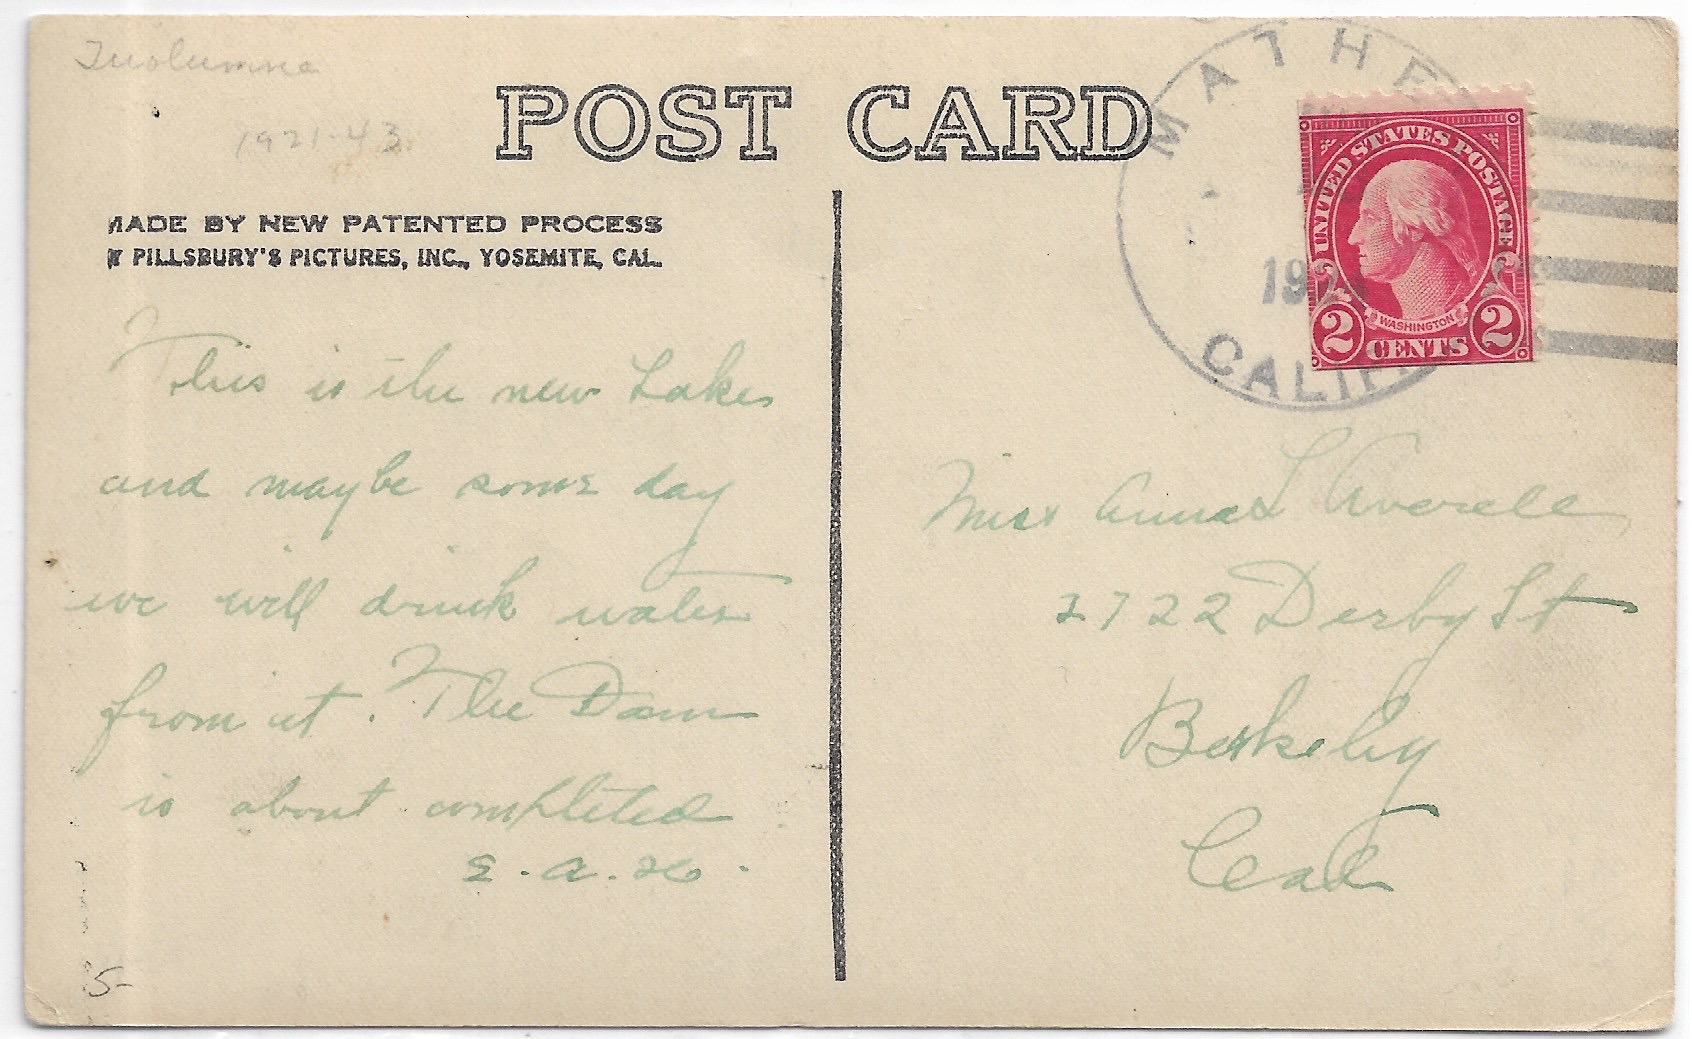 Tuolumne
1921-43
POST CARD
MADE BY NEW PATENTED PROCESS
PILLSBURY'S PICTURES, INC., YOSEMITE, CAL.
This is the new Lake
and maybe some day
we will drink water
from it. The Dam
is about completed
E. A. H.
5-
MATHER
192
CALIF
UNITED STATES POSTAGE
WASHINGTON
2 CENTS 2
Miss Anna L Averell
2722 Derby St
Berkeley
Cal